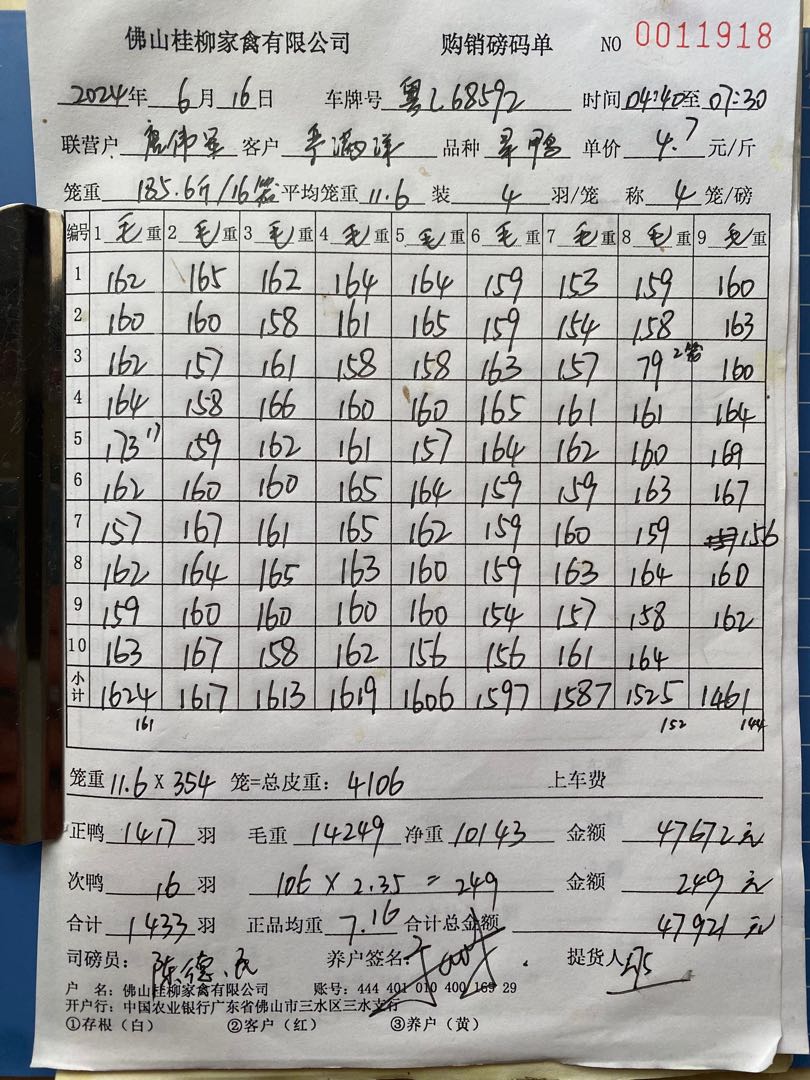 佛山桂柳家禽有限公司 购销磅码单 NO 0011918
2024年 6月 16日 车牌号 粤L68592 时间 04:40至 07:30
联营户 客户 品种 单价 4.7 元/斤
笼重 185.6斤/16笼 平均笼重 11.6 装 4 羽/笼 称 4 笼/磅
编号 1 毛 重 2 毛 重 3 毛 重 4 毛 重 5 毛 重 6 毛 重 7 毛 重 8 毛 重 9 毛 重
1 162 165 162 164 164 159 153 159 160
2 160 160 158 161 165 159 154 158 163
3 162 157 161 158 158 163 157 79 2笼 160
4 164 158 166 160 160 165 161 161 164
5 173 17 159 162 161 157 164 162 160 169
6 162 160 160 165 164 159 159 163 167
7 157 167 161 165 162 159 160 159 156
8 162 164 165 163 160 159 163 164 160
9 159 160 160 160 160 154 157 158 162
10 163 167 158 162 156 156 161 164
小计 1624 1617 1613 1619 1606 1597 1587 1525 1461
161 152 144
笼重 11.6 X 354 笼=总皮重: 4106 上车费
正鸭 1417 羽 毛重 14249 净重 10143 金额 47672 元
次鸭 16 羽 106 X 2.35 = 249 金额 249 元
合计 1433 羽 正品均重 7.16 合计总金额 47921 元
司磅员: 陈德 养户签名: 提货人
户 名: 佛山桂柳家禽有限公司 账号: 444 401 010 400 169 29
开户行: 中国农业银行广东省佛山市三水区三水支行
①存根(白) ②客户(红) ③养户(黄)